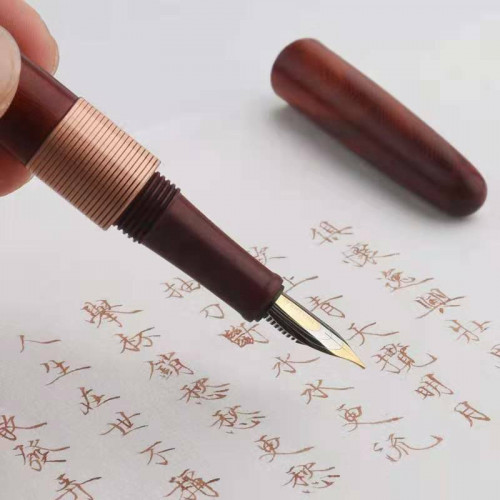 俱懷逸興壯
青天攬明月
抽刀斷水水更流
舉杯銷愁愁更愁
人生在世不稱
發弄